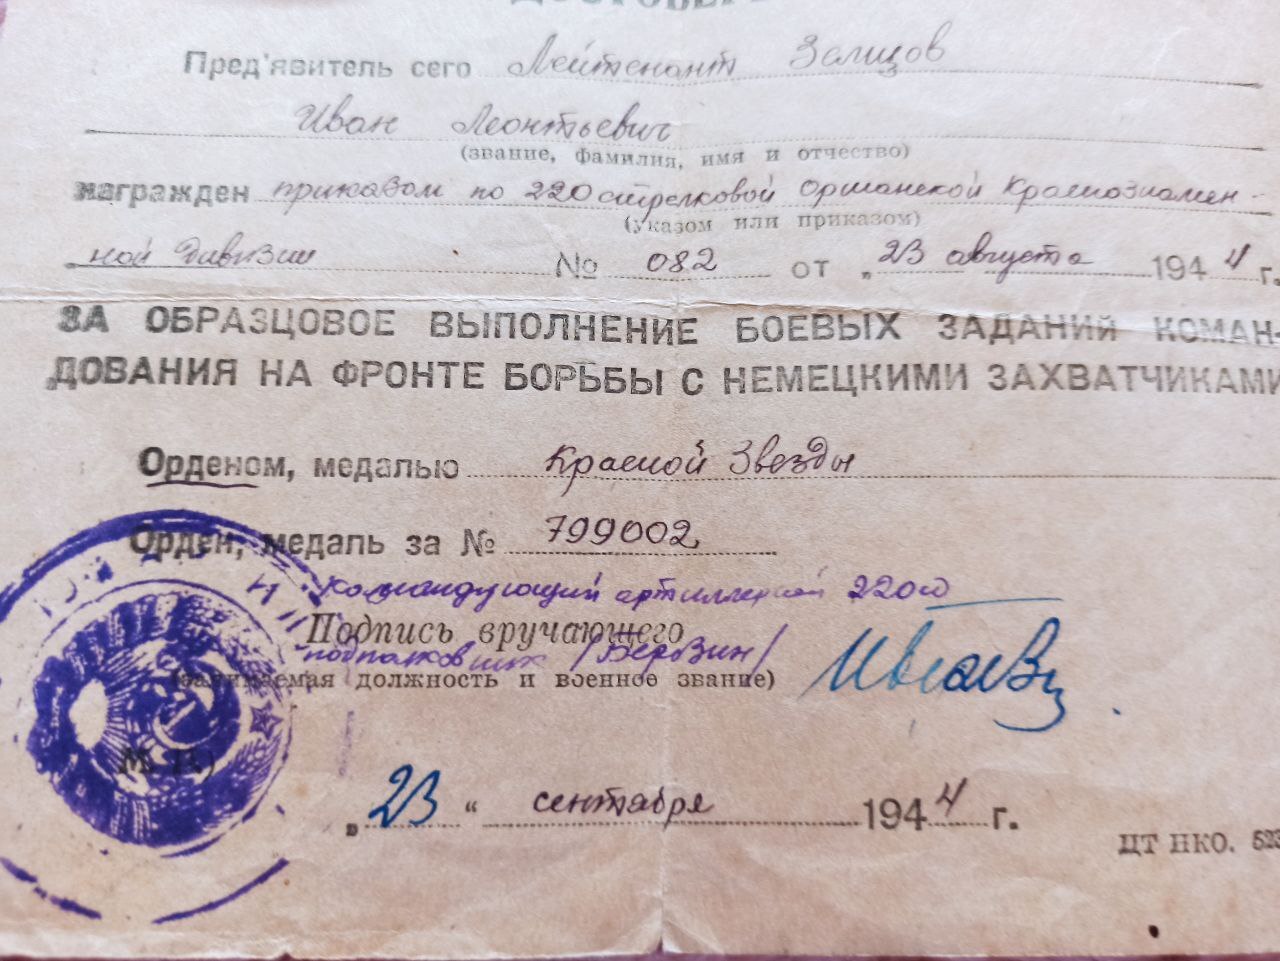 Пред'явитель сего Лейтенант Зелцов
Иван Леонтьевич
(звание, фамилия, имя и отчество)
награжден приказом по 220 стрелковой Оршанской Краснознамен-
(указом или приказом)
ной дивизии № 082 от „23 августа 1944 г.
ЗА ОБРАЗЦОВОЕ ВЫПОЛНЕНИЕ БОЕВЫХ ЗАДАНИЙ КОМАН-
ДОВАНИЯ НА ФРОНТЕ БОРЬБЫ С НЕМЕЦКИМИ ЗАХВАТЧИКАМИ
Орденом, медалью Красной Звезды
Орден, медаль за № 799002
Командующий артиллерией 220сд
Подпись вручающего
подполковник /Берзин/
(занимаемая должность и военное звание)
М. П.
„23“ сентября 1944 г.
ЦТ НКО. 523